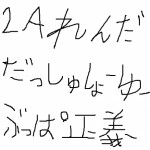 2Aれんだ
だっしゅしょーゆー
ぶっぱ正義